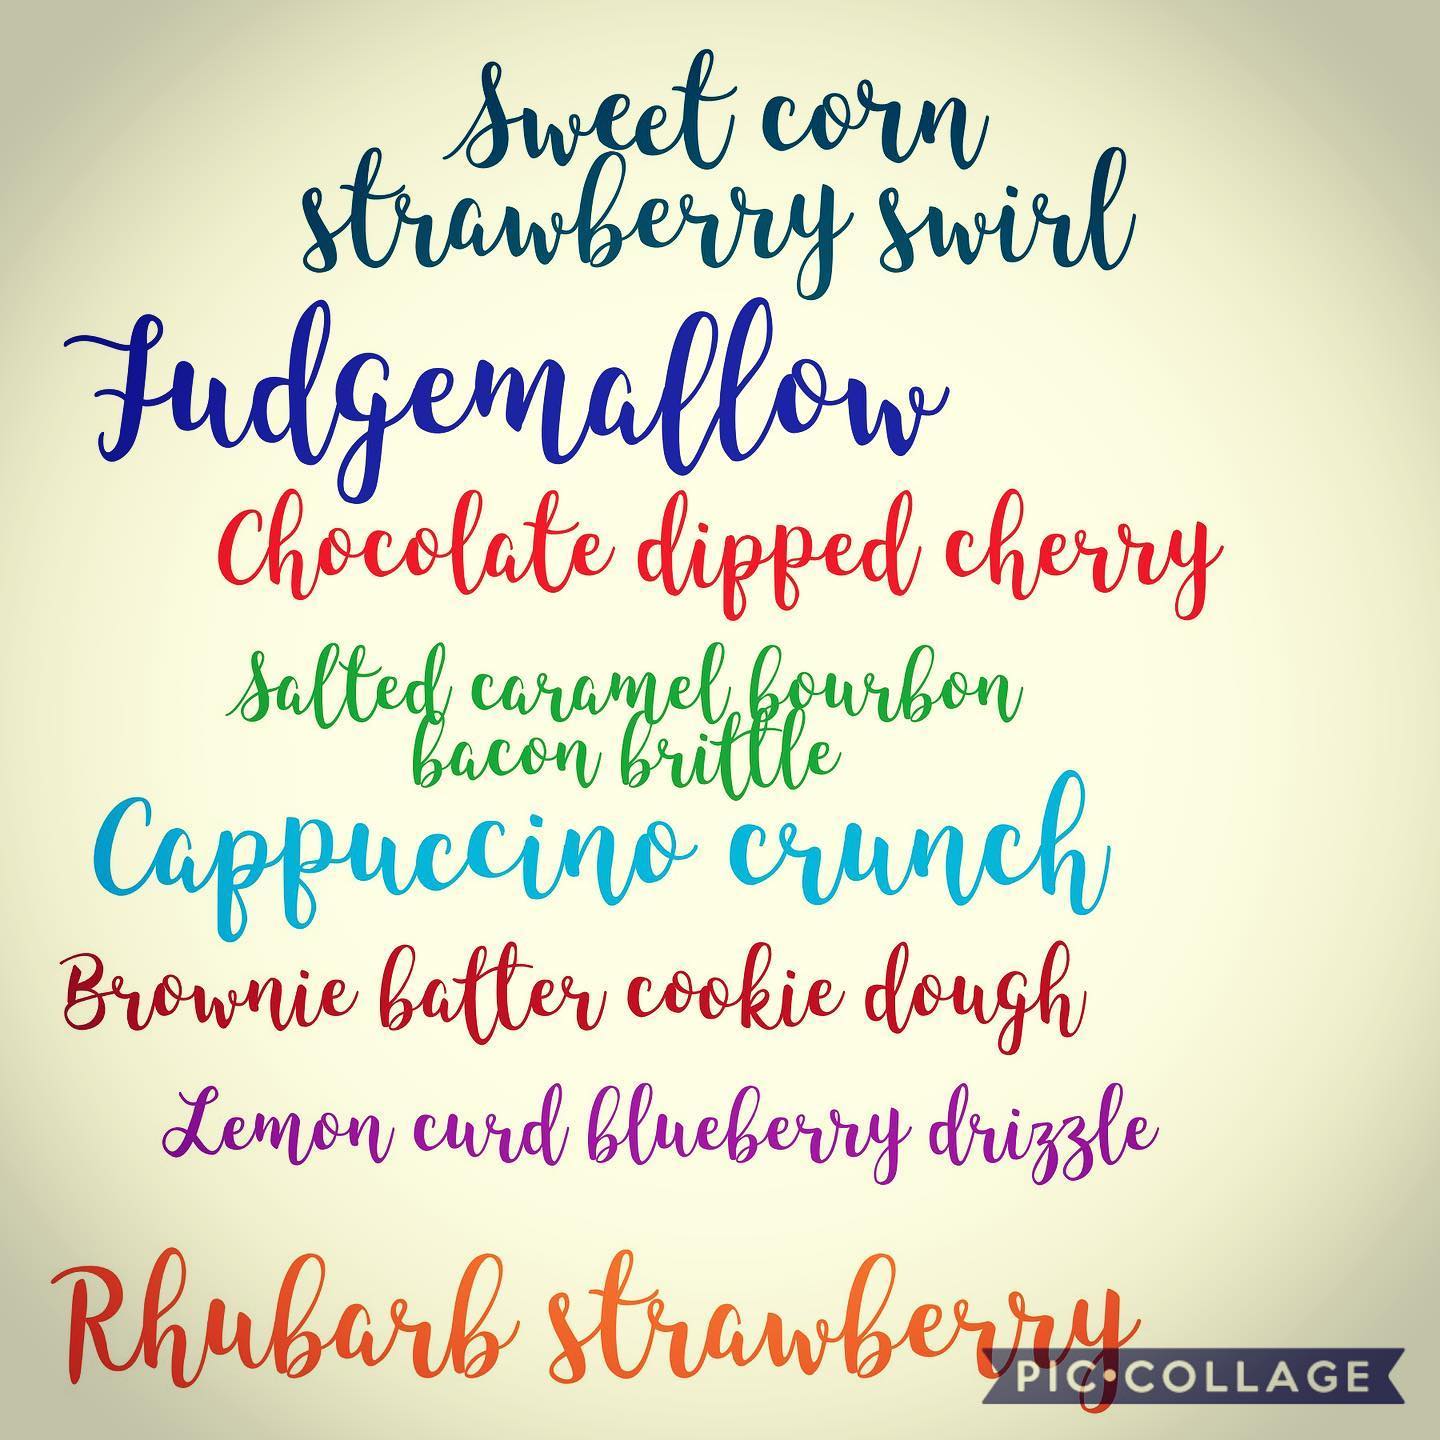 Sweet corn
strawberry swirl
Fudgemallow
Chocolate dipped cherry
Salted caramel bourbon
bacon brittle
Cappuccino crunch
Brownie batter cookie dough
Lemon curd blueberry drizzle
Rhubarb strawberry
PIC•COLLAGE